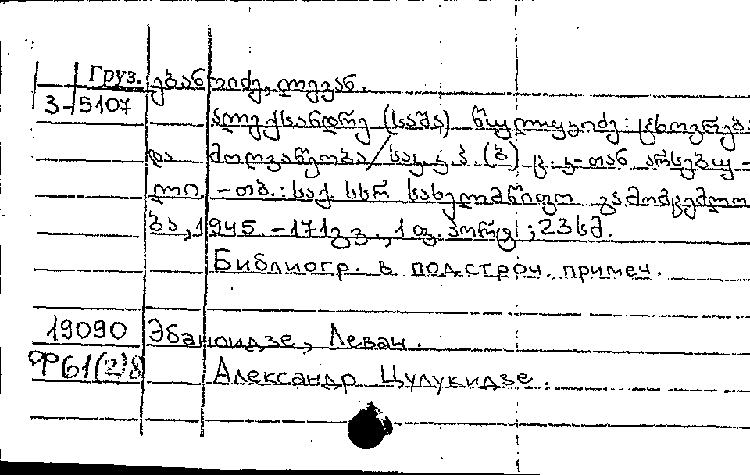 Груз. ებანოიძე, ლევან.
3-5107
ალექსანდრე (საშა) წულუკიძე: ცხოვრება
და მოღვაწეობა / საკ. კ. პ. (ბ) ც. კ-თან არსებუ-
ლი. -თბ.: საქ. სსრ სახელმწიფო გამომცემლო
ბა, 1945. -171 გვ., 1 ფ. პორტ; 23 სმ.
Библиогр. в подстроч. примеч.
19090 Эбаноидзе, Леван.
ФР61(2)8 Александр Цулукидзе.